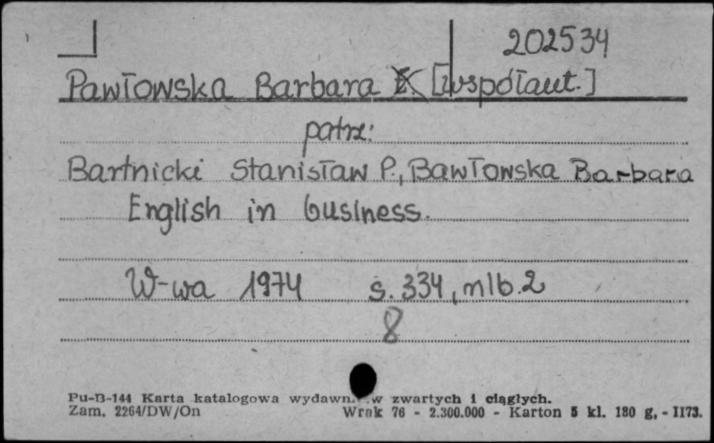 202534
Pawłowska Barbara [współaut.]
patrz:
Bartnicki Stanisław P., Bawłowska Barbara
English in business.
W-wa 1974 s. 334, nlb. 2
8
Pu-B-144 Karta katalogowa wydawn. w zwartych i ciągłych.
Zam. 2264/DW/On Wrak 76 - 2.300.000 - Karton 5 kl. 180 g, - II73.